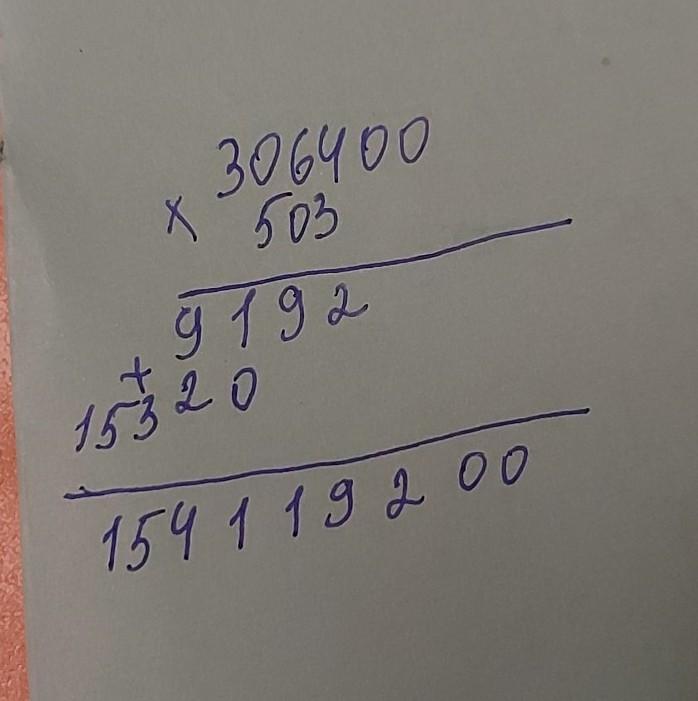 306400
× 503
9192
+
15320
154119200